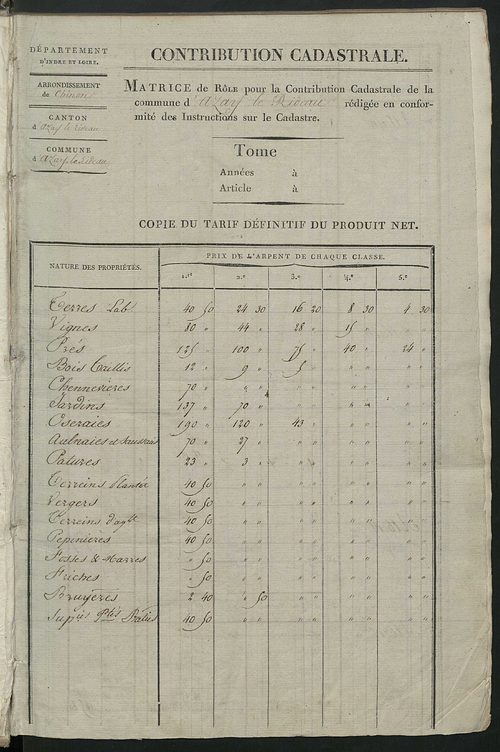 DÉPARTEMENT
D'INDRE ET LOIRE.
ARRONDISSEMENT
de Chinon
CANTON
d'azay le rideau
COMMUNE
d'azay le Rideau
CONTRIBUTION CADASTRALE.
MATRICE de RÔLE pour la Contribution Cadastrale de la
commune d'azay le Rideau rédigée en confor-
mité des Instructions sur le Cadastre.
Tome
Années à
Article à
COPIE DU TARIF DÉFINITIF DU PRODUIT NET.
NATURE DES PROPRIÉTÉS. PRIX DE L'ARPENT DE CHAQUE CLASSE.
1.re 2.e 3.e 4.e 5.e
Terres Lab 40 50 24 30 16 20 8 30 4 30
Vignes 80 " 44 " 28 " 15 "
Prés 125 " 100 " 75 " 40 " 24 "
Bois Taillis 12 " 9 " 5 " " " " "
Chennevières 70 " " " " " " " " "
Jardins 137 " 70 " " " " " " "
Oseraies 190 " 120 " 43 " " " " "
Aulnaies et Saussaies 70 " 27 " " " " " " "
Patures 23 " 3 " " " " " " "
Terreins Plantés 40 50 " " " " " " " "
Vergers 40 50 " " " " " " " "
Terreins d'agt 40 50 " " " " " " " "
Pepinieres 40 50 " " " " " " " "
Fosses & Marres " 50 " " " " " " " "
Friches " 50 " " " " " " " "
Bruyeres 2 40 " 50 " " " " " "
Sup.ies P.tés Baties 40 50 " " " " " " " "